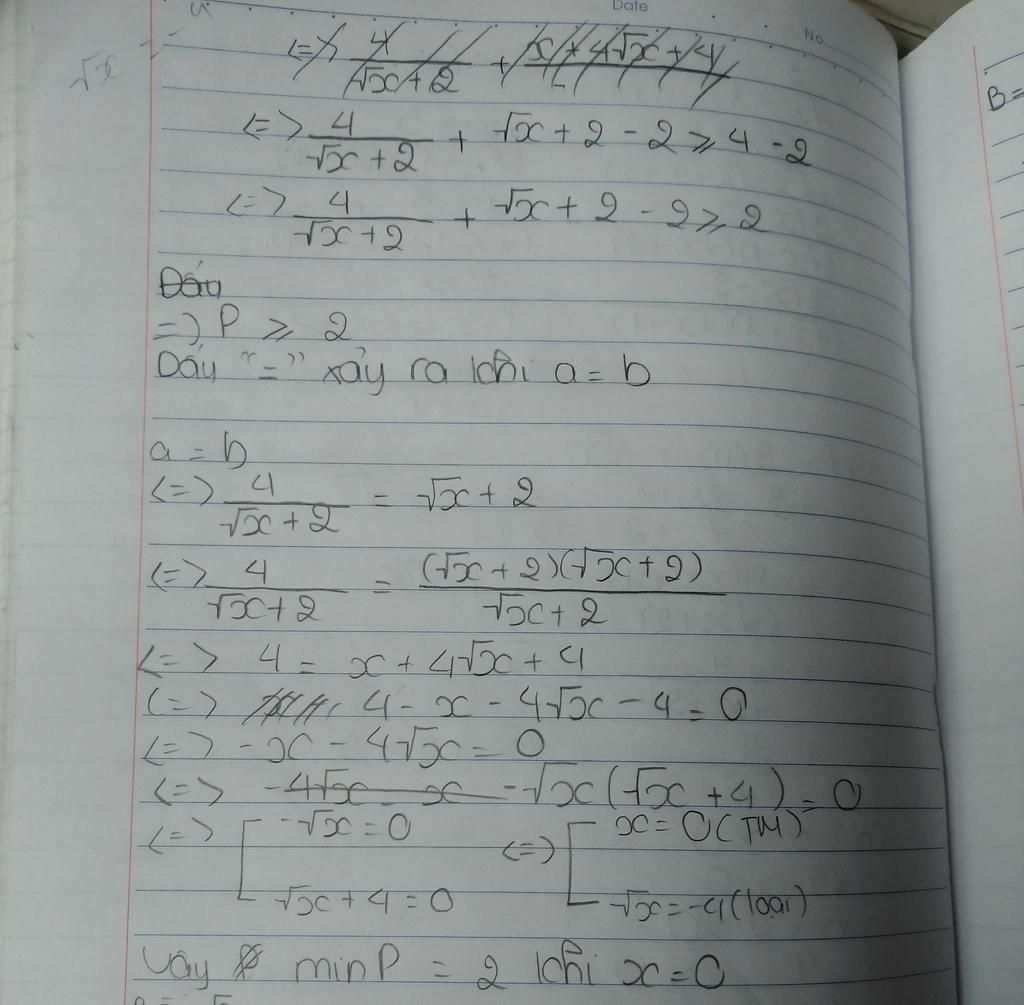 Date
No
√x
<=> 4/(√x+2) + (x+4√x+4)/
<=> 4/(√x+2) + √x+2-2 ⩾ 4-2
<=> 4/(√x+2) + √x+2-2 ⩾ 2
Dấu
=) P ⩾ 2
Dấu "=" xảy ra khi a = b
a = b
<=> 4/(√x+2) = √x+2
<=> 4/(√x+2) = (√x+2)(√x+2)/(√x+2)
<=> 4 = x+4√x+4
<=> 4-x-4√x-4=0
<=> -x-4√x=0
<=> -4√x-x -√x(√x+4)=0
<=> [ -√x=0 <=> [ x=0(TM)
√x+4=0 √x=-4(loại)
Vậy min P = 2 khi x=0
B=